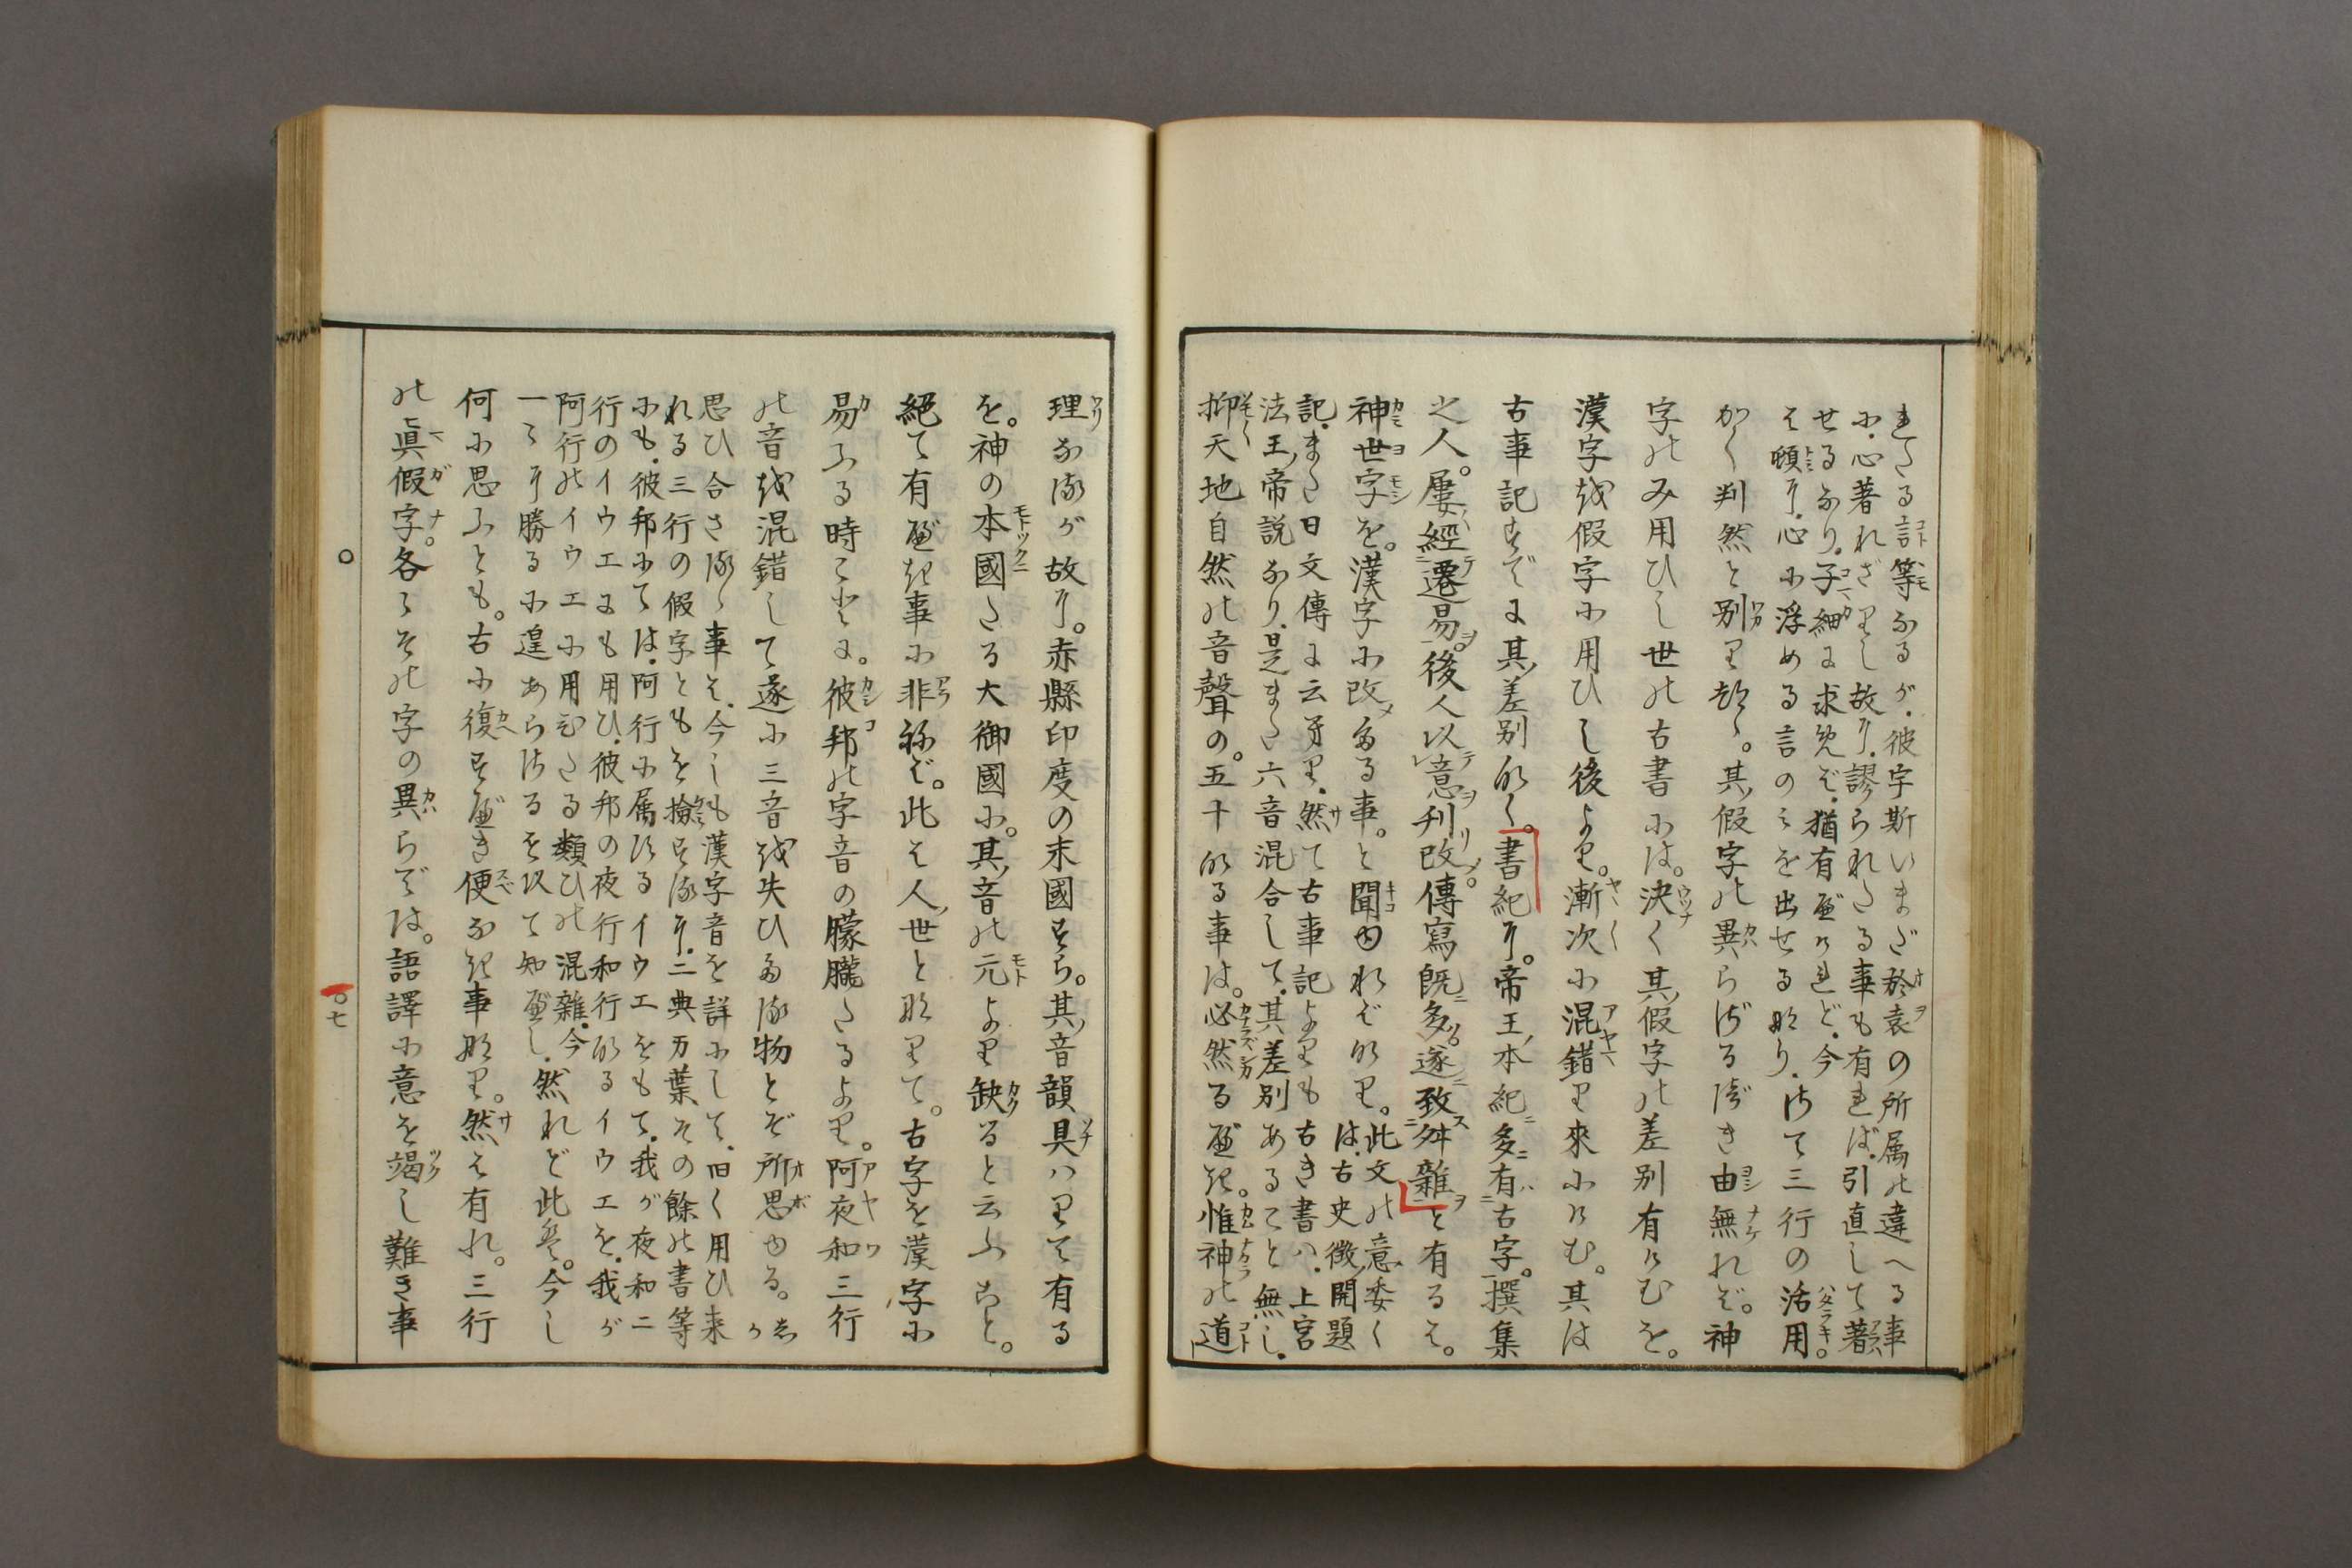 れたる言等なるが、彼字斯いまだ於袁の所属の違へる事
に、心著れざりし故に、謬られたる事も有れば、引直して著
せるなり、子細に求めば、猶有べけれど、今
は頓に心に浮める言のみを出せるなり、さて三行の活用。
かく判然と別り都く。其假字の異らざるべき由無れば。神
字のみ用ひし世の古書には。決く其假字の差別有けむを。
漢字を假字に用ひし後より。漸次に混錯り來にけむ。其は
古事記すでに其差別なく。書紀に。帝王本紀多有古字。撰集
之人。屢經遷易。後人以意刊改。傳寫既多。遂致舛雜と有るは。
神世字を。漢字に改めたる事。と聞ゆればなり。此文の意委く
は、古史徴開題
記、また日文傳に云へり、然て古事記よりも古き書ハ、上宮
法王帝説なり、是また六音混合して、其差別あること無し、
抑天地自然の音聲の。五十なる事は。必然るべき。惟神の道
理なるが故に。赤縣印度の末國すら。其音韻具ハりて有る
を。神の本國たる大御國に。其音の元より缺ると云ふこと。
絶て有べき事に非ねば。此は人世と成りて。古字を漢字に
易ふる時ことに。彼邦の字音の朦朧たるより。阿夜和三行
の音を混錯して遂に三音を失ひたる物とぞ所思ゆる。
思ひ合さるゝ事は、今しも漢字音を詳にして、旧く用ひ来
れる三行の假字ともを撿するに、二典万葉その餘の書等
にも、彼邦にては、阿行に属けるイウエをもて、我が夜和二
行のイウエにも用ひ、彼邦の夜行和行なるイウエを、我が
阿行のイウエに用ひたる類ひの混雜、今
一々に勝るに遑あらざるを以て知べし、然れど此は。今し
何に思ふとも。古に復すべき便なき事なり。然は有れ。三行
の眞假字。各々その字の異らでは。語譯に意を竭し難き事
七